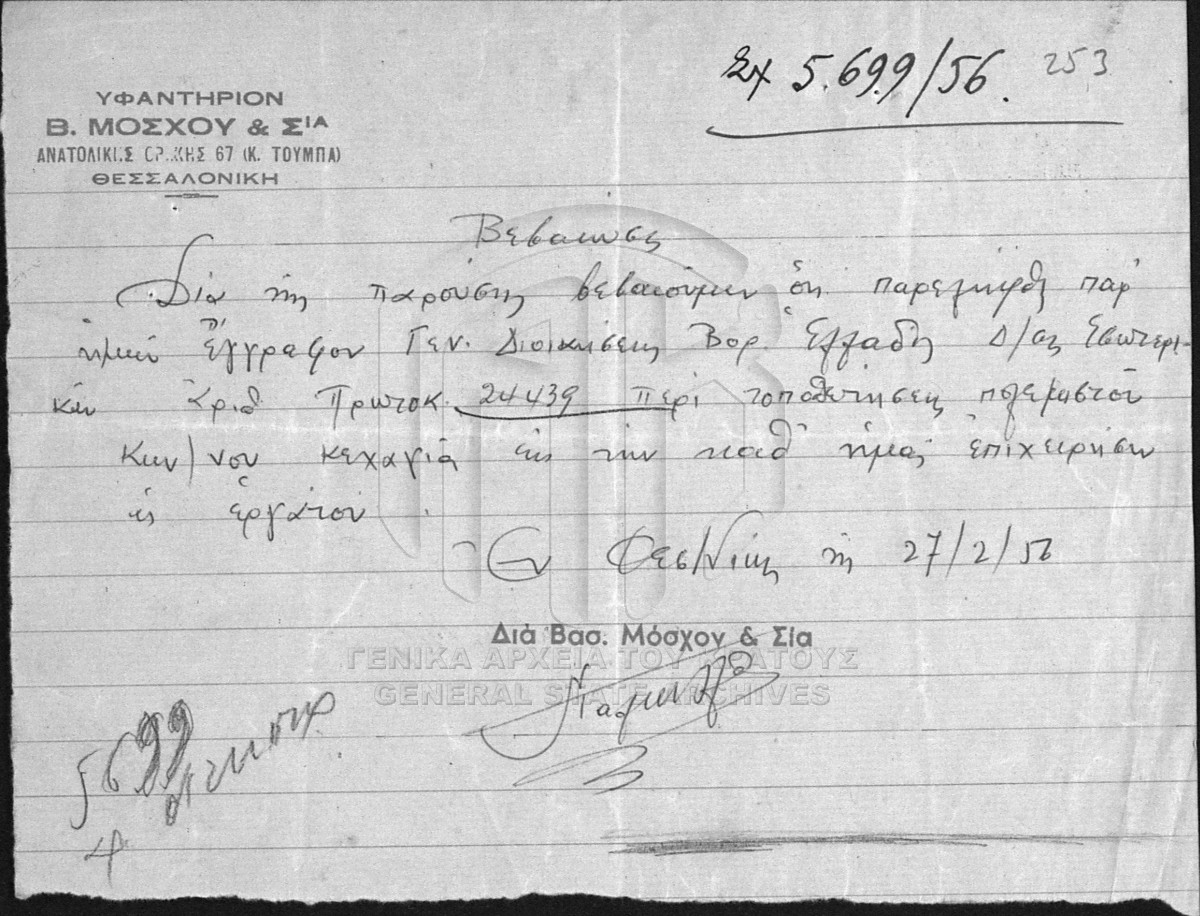 Σχ 5.699/56.
253
ΥΦΑΝΤΗΡΙΟΝ
Β. ΜΟΣΧΟΥ & ΣΙΑ
ΑΝΑΤΟΛΙΚΗΣ ΘΡΑΚΗΣ 67 (Κ. ΤΟΥΜΠΑ)
ΘΕΣΣΑΛΟΝΙΚΗ
Βεβαίωσις
Διά της παρούσης βεβαιούμεν ότι παρελήφθη παρ'
ημών έγγραφον Γεν. Διοικήσεως Βορ. Ελλάδος Δ/σις Εσωτερι-
κών Αριθ Πρωτοκ. 24439 περί τοποθετήσεως πολεμιστού
Κων/νου Κεχαγιά εις την καθ' ημάς επιχείρησιν
ως εργάτου.
Εν Θεσ/νίκη τη 27/2/56
Διά Βασ. Μόσχου & Σία
ΓΕΝΙΚΑ ΑΡΧΕΙΑ ΤΟΥ ΚΡΑΤΟΥΣ
GENERAL STATE ARCHIVES
5699